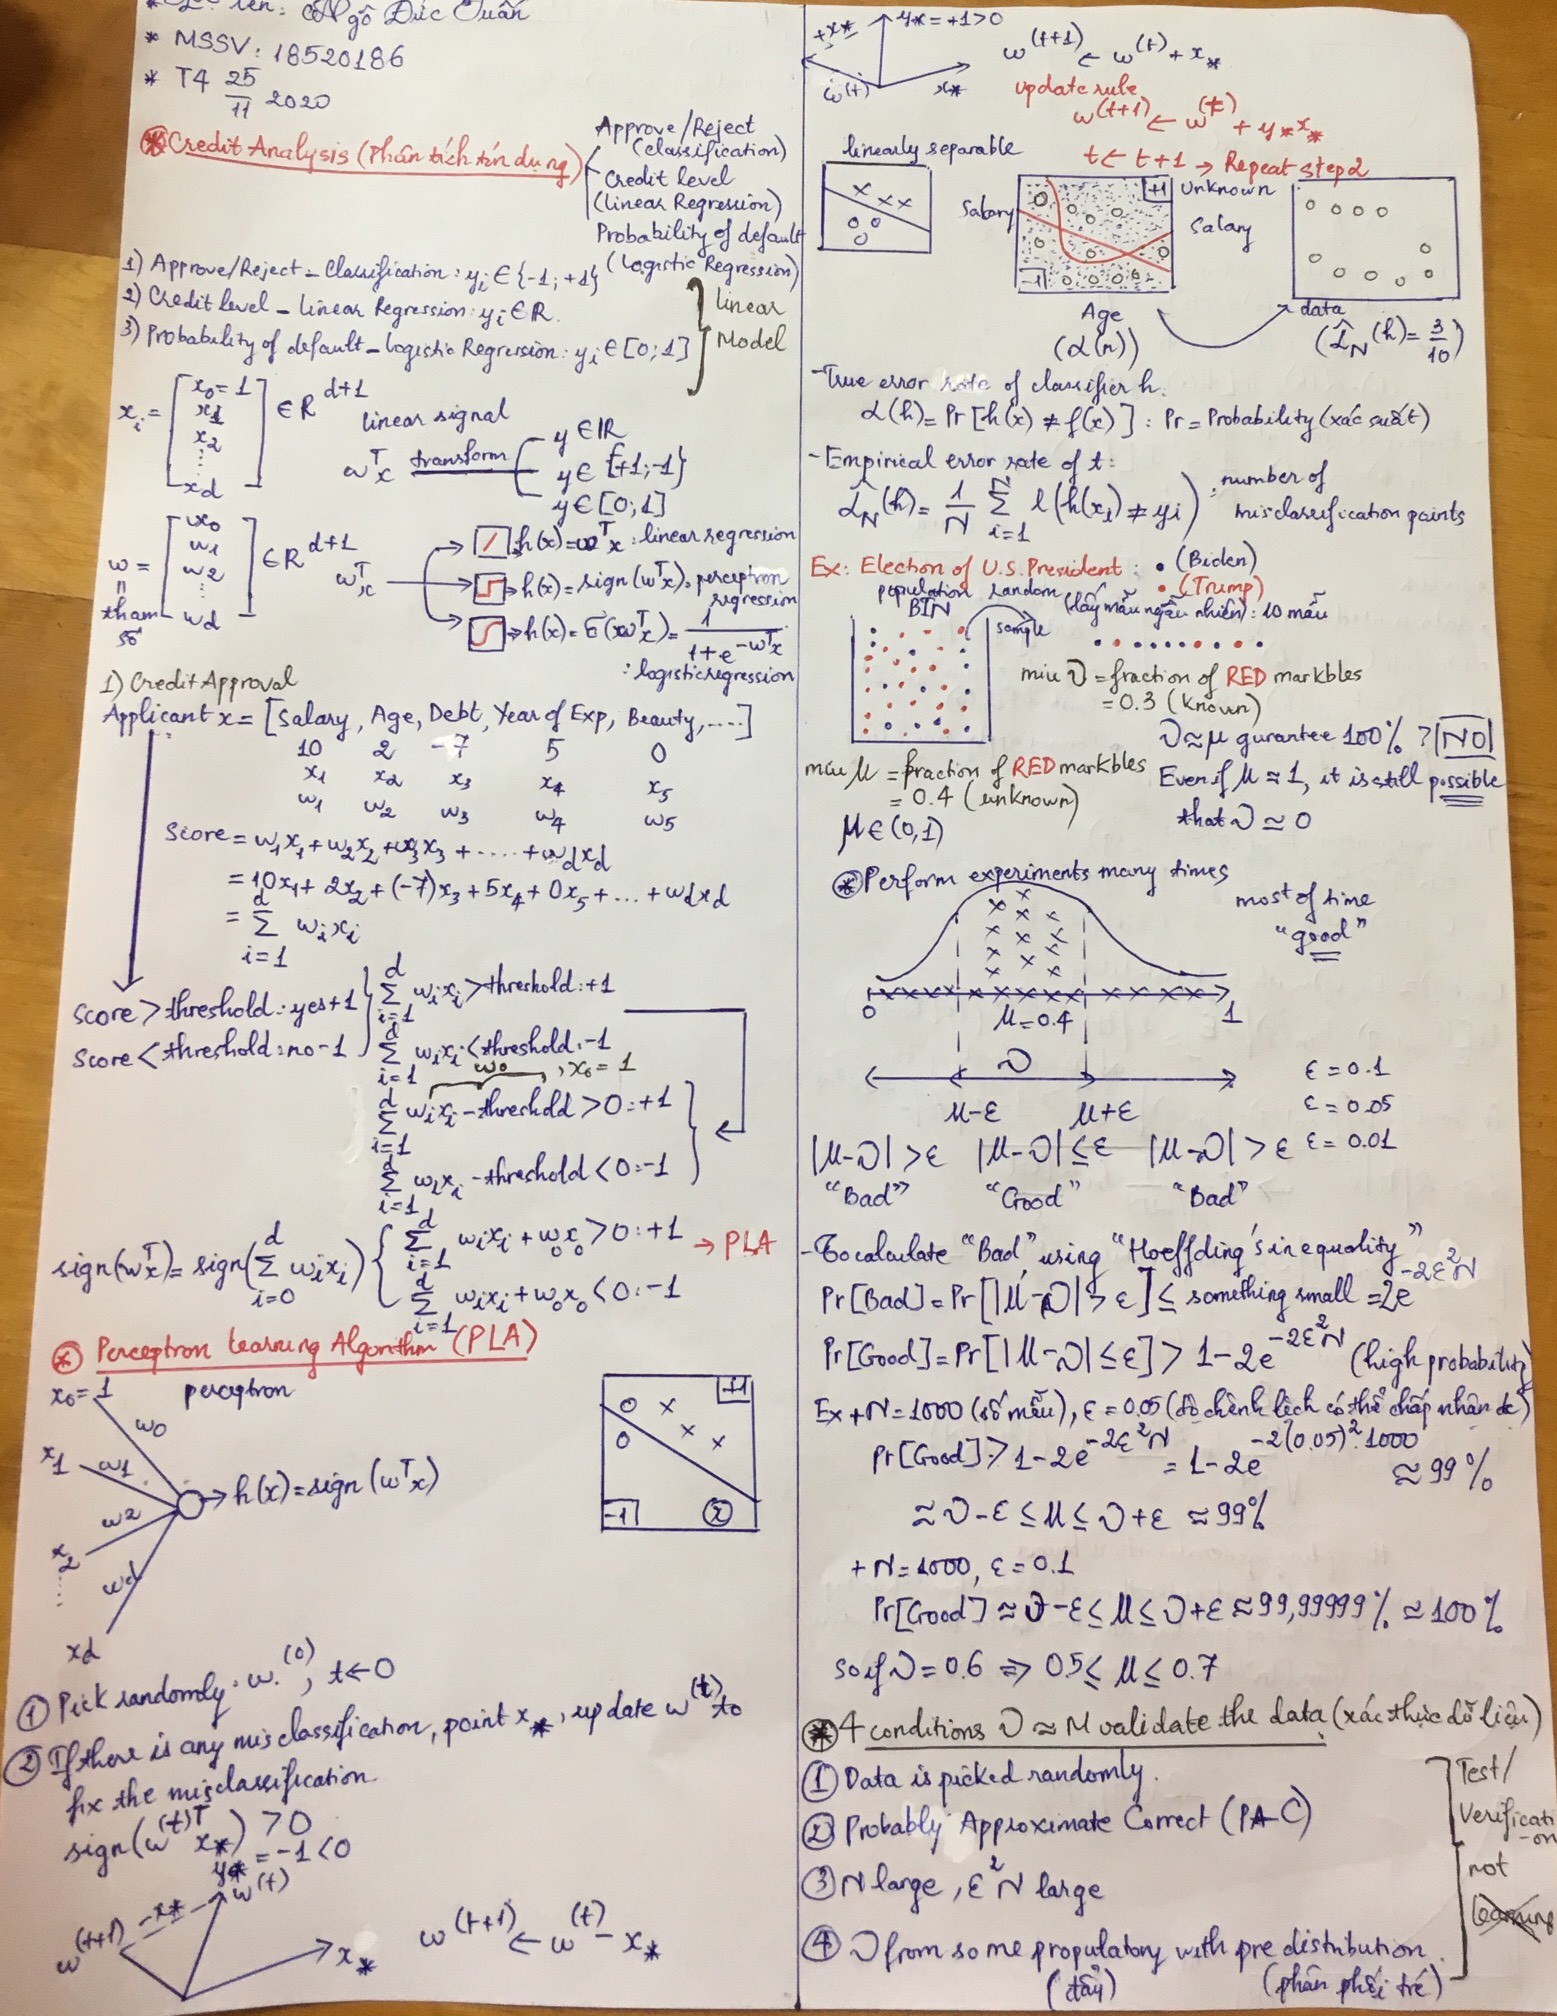 * Họ tên: Ngô Đức Tuấn
* MSSV: 18520186
* T4 25/11 2020
⊛ Credit Analysis (Phân tích tín dụng)
Approve/Reject
(classification)
Credit level
(linear Regression)
Probability of default
(Logistic Regression)
1) Approve/Reject - Classification: yi ∈ {-1; +1}
2) Credit level - linear Regression: yi ∈ R
3) Probability of default - logistic Regression: yi ∈ [0; 1]
} linear Model
xi = [x0 = 1, x1, x2, ..., xd] ∈ R^(d+1)
linear signal
w^T x transform
y ∈ IR
y ∈ {+1; -1}
y ∈ [0; 1]
w = [w0, w1, w2, ..., wd] ∈ R^(d+1)
tham số
w^T x
h(x) = w^T x: linear regression
→ h(x) = sign(w^T x): perceptron regression
→ h(x) = б(w^T x) = 1/(1+e^(-w^T x))
: logistic regression
1) Credit Approval
Applicant x = [Salary, Age, Debt, Year of Exp, Beauty, ....]
10 2 -7 5 0
x1 x2 x3 x4 x5
w1 w2 w3 w4 w5
Score = w1x1 + w2x2 + w3x3 + ..... + wdxd
= 10x1 + 2x2 + (-7)x3 + 5x4 + 0x5 + ... + wdxd
= Σ(i=1→d) wixi
Score > threshold: yes +1
Score < threshold: no -1
Σ(i=1→d) wixi > threshold: +1
Σ(i=1→d) wixi < threshold: -1
w0, x0 = 1
Σ(i=1→d) wixi - threshold > 0: +1
Σ(i=1→d) wixi - threshold < 0: -1
sign(w^T x) = sign(Σ(i=0→d) wixi)
Σ(i=1→d) wixi + w0x0 > 0: +1
Σ(i=1→d) wixi + w0x0 < 0: -1
→ PLA
⊛ Perceptron Learning Algorithm (PLA)
x0 = 1 perceptron
w0
x1 w1
w2
x2
....
wd
xd
→ h(x) = sign(w^T x)
+1
-1
① Pick randomly: w^(0), t ← 0
② If there is any misclassification, point x*, update w^(t) to
fix the misclassification
sign(w^(t)T x*) > 0
y* = -1 < 0
w^(t+1) -x* w^(t)
x*
w^(t+1) ← w^(t) - x*
+x* y* = +1 > 0
w^(t) x*
w^(t+1) ← w^(t) + x*
update rule
w^(t+1) ← w^(t) + y* x*
t ← t+1 → Repeat step 2
linearly separable
Salary +1 Unknown
-1
Age
(L(h))
Salary
data
(L̂N(h) = 3/10)
-True error rate of classifier h.
L(h) = Pr[h(x) ≠ f(x)]: Pr = Probability (xác suất)
-Empirical error rate of t:
L̂N(h) = 1/N Σ(i=1→N) l(h(xi) ≠ yi): number of
misclassification points
Ex: Election of U.S. President: • (Biden)
• (Trump)
population BIN
random
sample
(lấy mẫu ngẫu nhiên): 10 mẫu
miu ν = fraction of RED markbles
= 0.3 (known)
miu μ = fraction of RED markbles
= 0.4 (unknown)
μ ∈ (0,1)
ν ≈ μ gurantee 100% ? NO
Even if μ ≈ 1, it is still possible
that ν ≃ 0
⊛ Perform experiments many times
most of time
"good"
0 μ = 0.4 1
ν
μ-ε μ+ε
ε = 0.1
ε = 0.05
ε = 0.01
|μ-ν| > ε |μ-ν| ≤ ε |μ-ν| > ε
"Bad" "Good" "Bad"
-To calculate "Bad", using "Hoeffding's inequality"
Pr[Bad] = Pr[|μ-ν| > ε] ≤ something small = 2e^(-2ε²N)
Pr[Good] = Pr[|μ-ν| ≤ ε] > 1-2e^(-2ε²N) (high probability)
Ex + N = 1000 (số mẫu), ε = 0.05 (độ chênh lệch có thể chấp nhận đc)
Pr[Good] > 1-2e^(-2ε²N) = 1-2e^(-2(0.05)².1000) ≈ 99%
≈ ν-ε ≤ μ ≤ ν+ε ≈ 99%
+ N = 1000, ε = 0.1
Pr[Good] ≈ ν-ε ≤ μ ≤ ν+ε ≈ 99,99999% ≈ 100%
so if ν = 0.6 ⇒ 0.5 ≤ μ ≤ 0.7
⊛ 4 conditions ν ≈ μ validate the data (xác thực dữ liệu)
① Data is picked randomly.
② Probably Approximate Correct (PAC)
③ N large, ε²N large
④ ν from some propulatory with pre distribution
(đầy) (phân phối trế)
Test/
Verificati
-on
not
learning